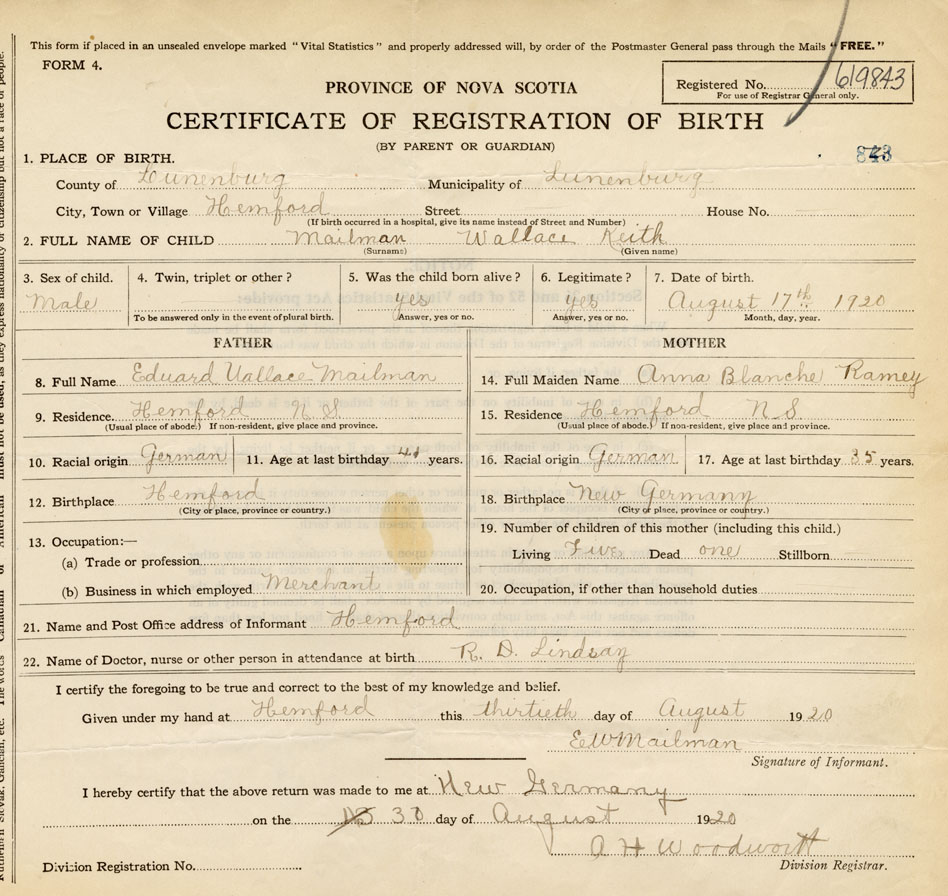 This form if placed in an unsealed envelope marked "Vital Statistics" and properly addressed will, by order of the Postmaster General pass through the Mails "FREE."
FORM 4.
Registered No. 619843
For use of Registrar General only.
PROVINCE OF NOVA SCOTIA
CERTIFICATE OF REGISTRATION OF BIRTH
(BY PARENT OR GUARDIAN)
843
1. PLACE OF BIRTH.
County of Lunenburg Municipality of Lunenburg
City, Town or Village Hemford Street House No.
(If birth occurred in a hospital, give its name instead of Street and Number)
2. FULL NAME OF CHILD Mailman Wallace Keith
(Surname) (Given name)
3. Sex of child. 4. Twin, triplet or other? 5. Was the child born alive? 6. Legitimate? 7. Date of birth.
Male yes yes August 17th 1920
To be answered only in the event of plural birth. Answer, yes or no. Answer, yes or no. Month, day, year.
FATHER MOTHER
8. Full Name Eduard Wallace Mailman 14. Full Maiden Name Anna Blanche Ramey
9. Residence. Hemford N.S. 15. Residence Hemford N.S.
(Usual place of abode.) If non-resident, give place and province. (Usual place of abode.) If non-resident, give place and province.
10. Racial origin German 11. Age at last birthday 41 years. 16. Racial origin German 17. Age at last birthday 35 years.
12. Birthplace Hemford 18. Birthplace New Germany
(City or place, province or country.) (City or place, province or country.)
19. Number of children of this mother (including this child.)
13. Occupation:—
Living Five Dead one Stillborn
(a) Trade or profession
(b) Business in which employed Merchant 20. Occupation, if other than household duties
21. Name and Post Office address of Informant Hemford
22. Name of Doctor, nurse or other person in attendance at birth R. D. Lindsay
I certify the foregoing to be true and correct to the best of my knowledge and belief.
Given under my hand at Hemford this thirtieth day of August 1920
E W Mailman
Signature of Informant.
I hereby certify that the above return was made to me at New Germany
on the 30 day of August 1920
A H Woodworth
Division Registration No. Division Registrar.